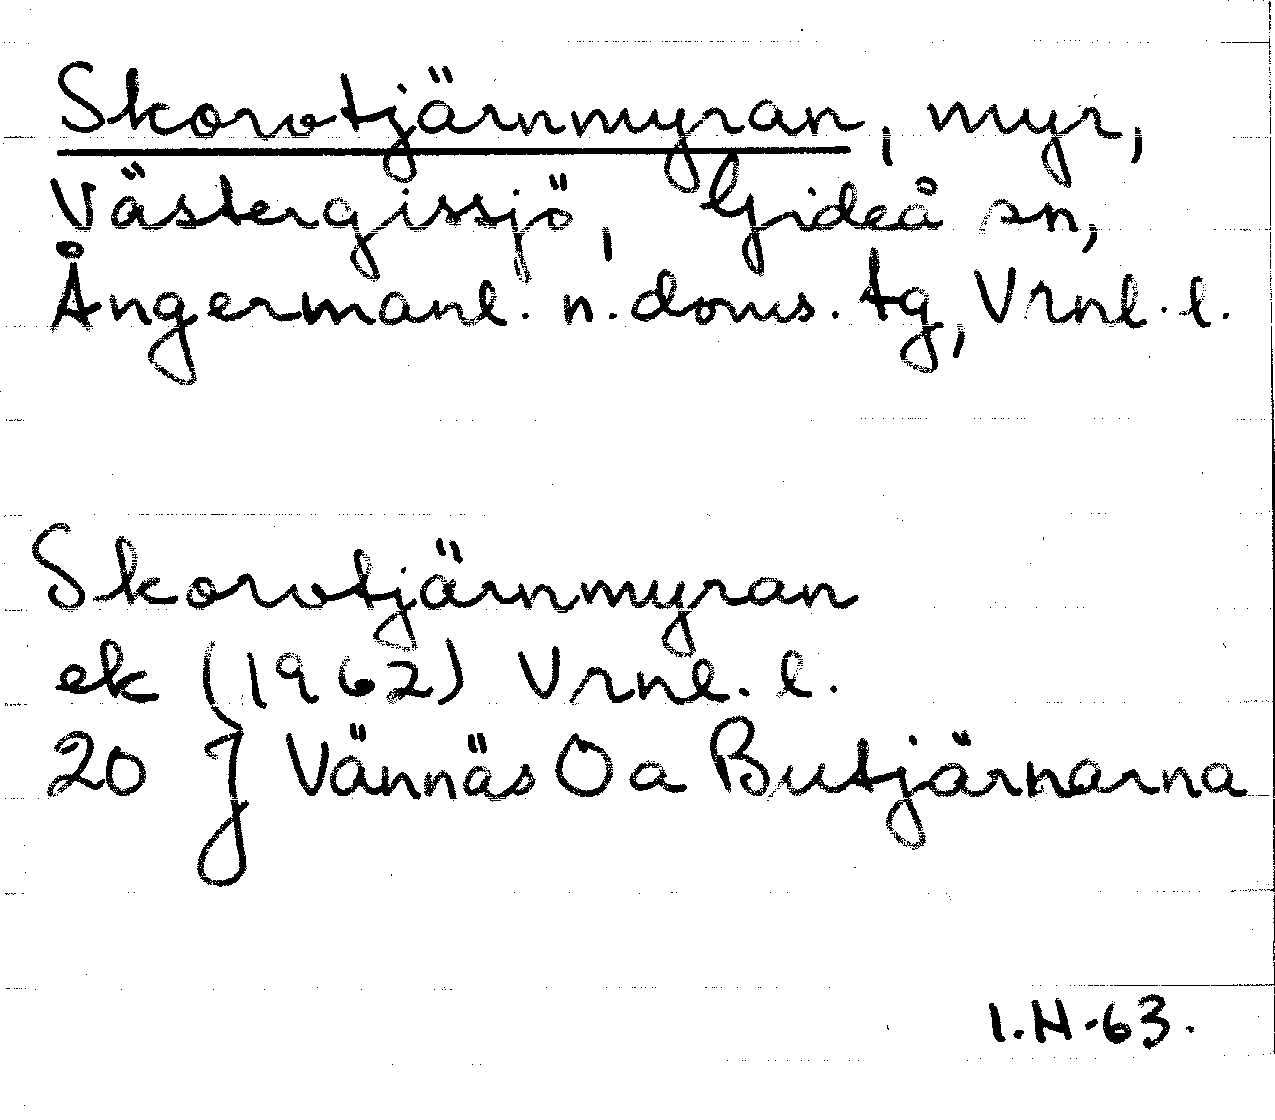 Skorvtjärnmyran, myr,
Västergissjö, Gideå sn,
Ångermanl. n. doms. tg, Vrnl. l.
Skorvtjärnmyran
ek (1962) Vrnl. l.
20 J Vännäs Öa Butjärnarna
I.H-63.